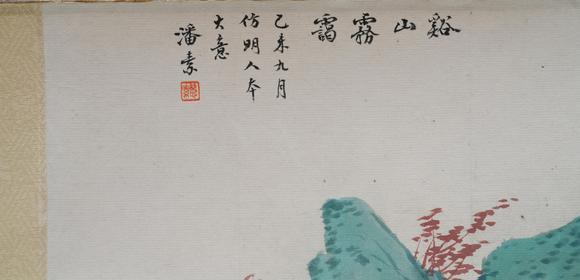 谿山霧靄
己未九月
仿明人本
大意
潘素